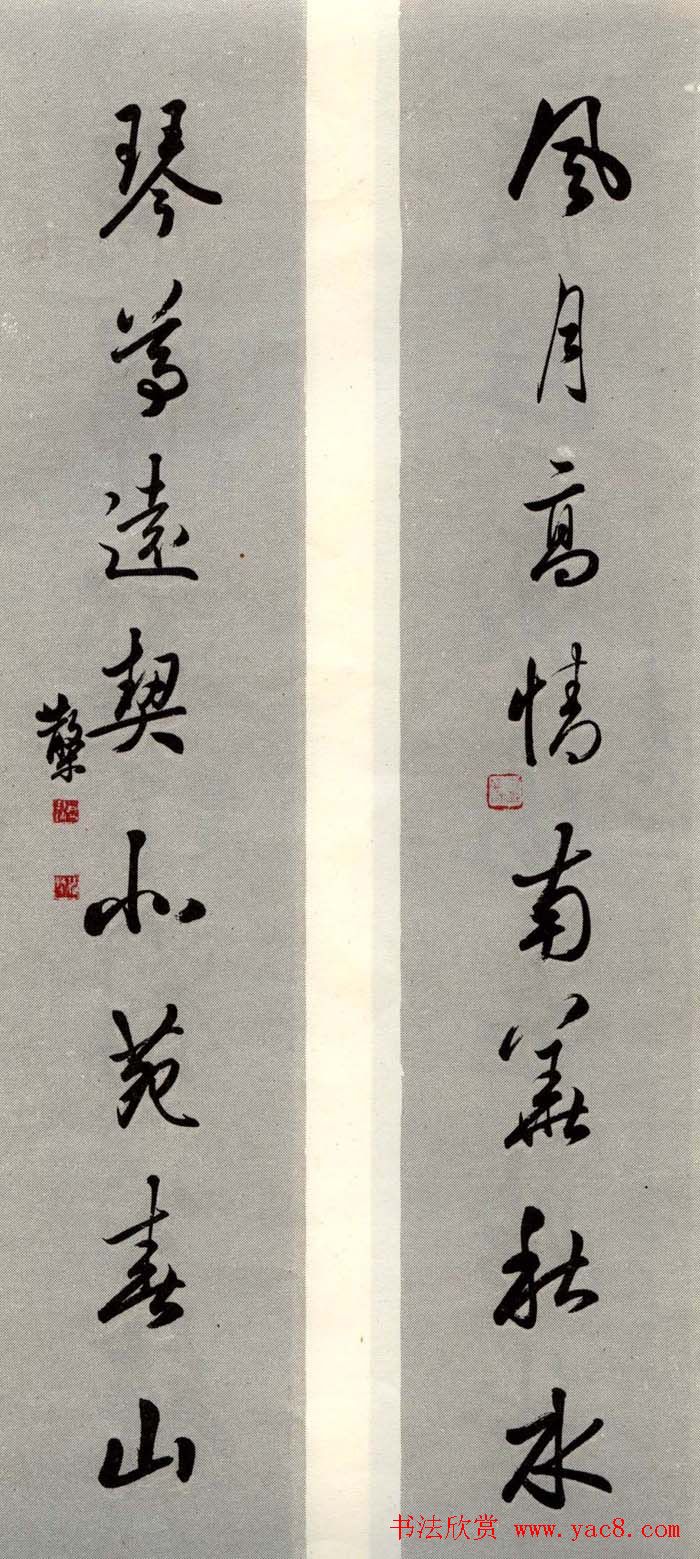 风月高情南华秋水
琴尊远契小苑春山
书法欣赏 www.yac8.com